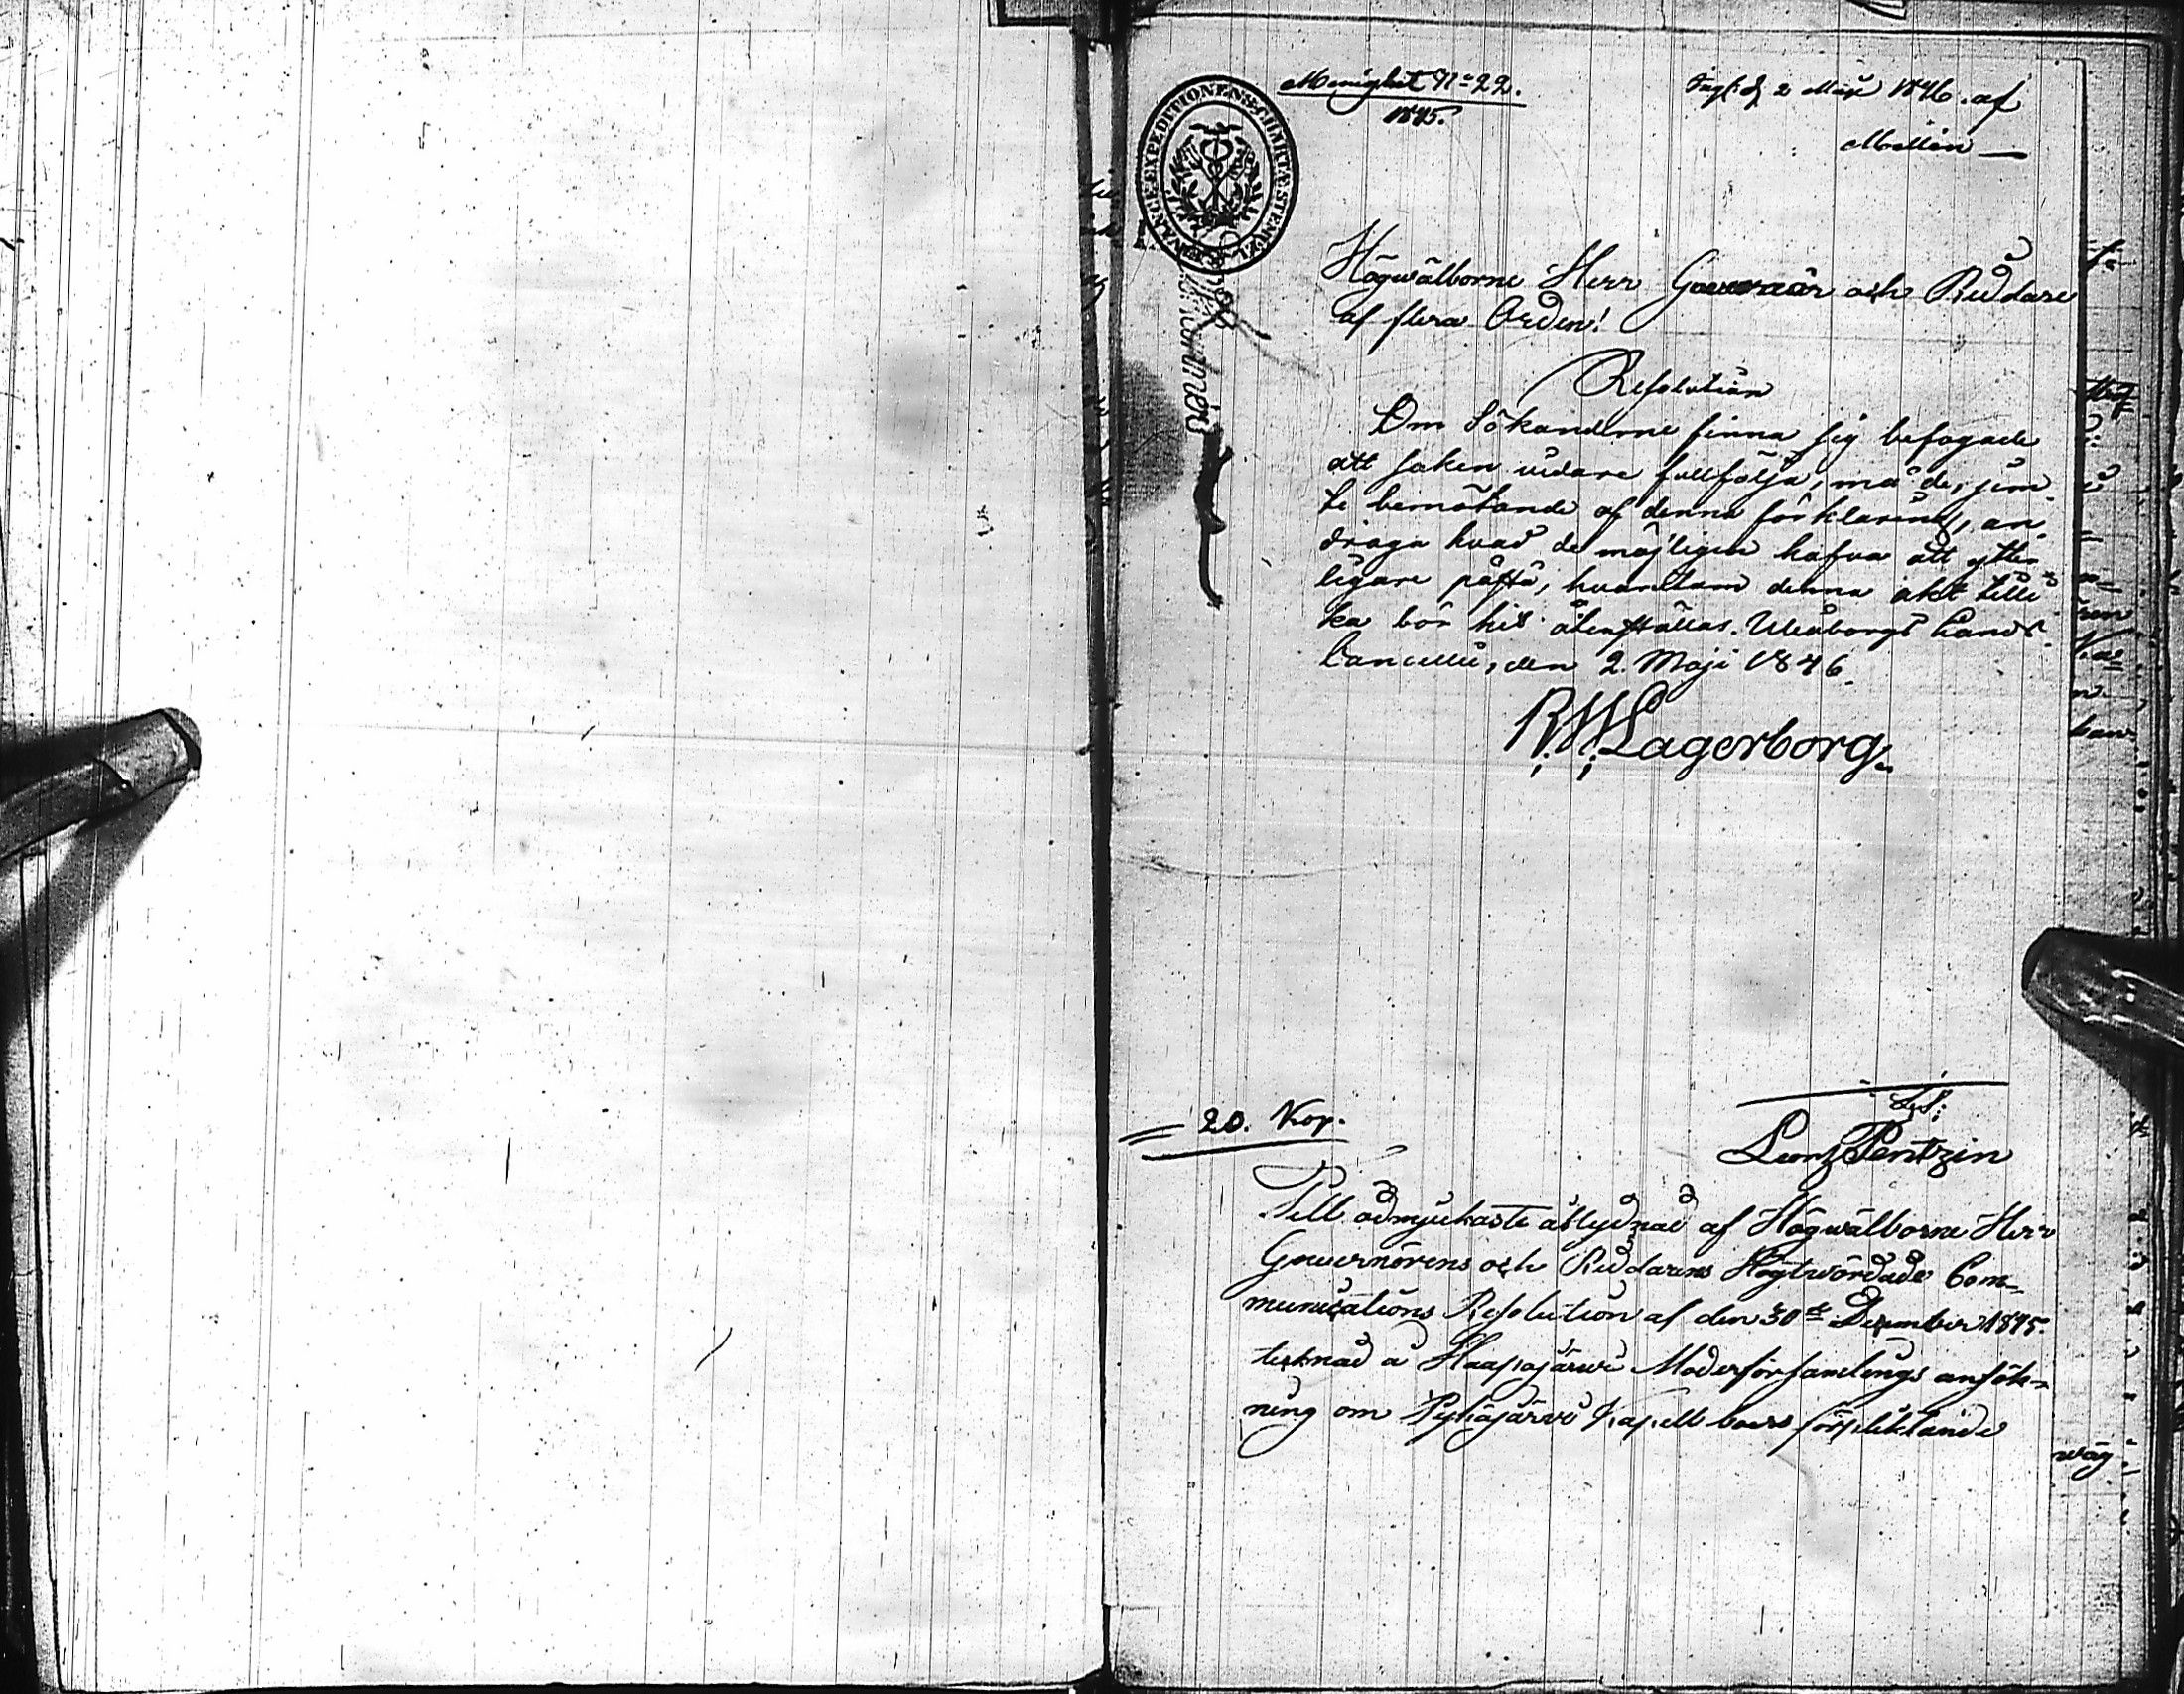 Menighet No 22.
1845.
Ingk. d. 2 Maji 1846. af
Mellin
FINANCE EXPEDITIONENS CHARTÆ STEMPEL
Högwälborne Herr Gouvernör och Riddare
af flera Orden!
Resolution
Om Sökanderne finna sig befogade
att saken vidare fullfölja, må de, jem-
te bemötande af denna förklaring, an-
draga hvad de möjligen hafva att ytter-
ligare påstå, hvarefter denna akt tilli-
ka bör hit återställas. Uleåborgs Lands
Cancellie, den 2. Maji 1846.
R. W. Lagerborg.
20. Kop.
Lor. Pentzin
Till ödmjukaste åtlydnad af Högwälborne Herr
Gouvernörens och Riddarens Högtwördade Com-
munications Resolution af den 30de December 1845.
tecknad å Haapajärwi Moderförsamlings ansök-
ning om Pyhäjärvi Kapell boers förpliktande
wäg